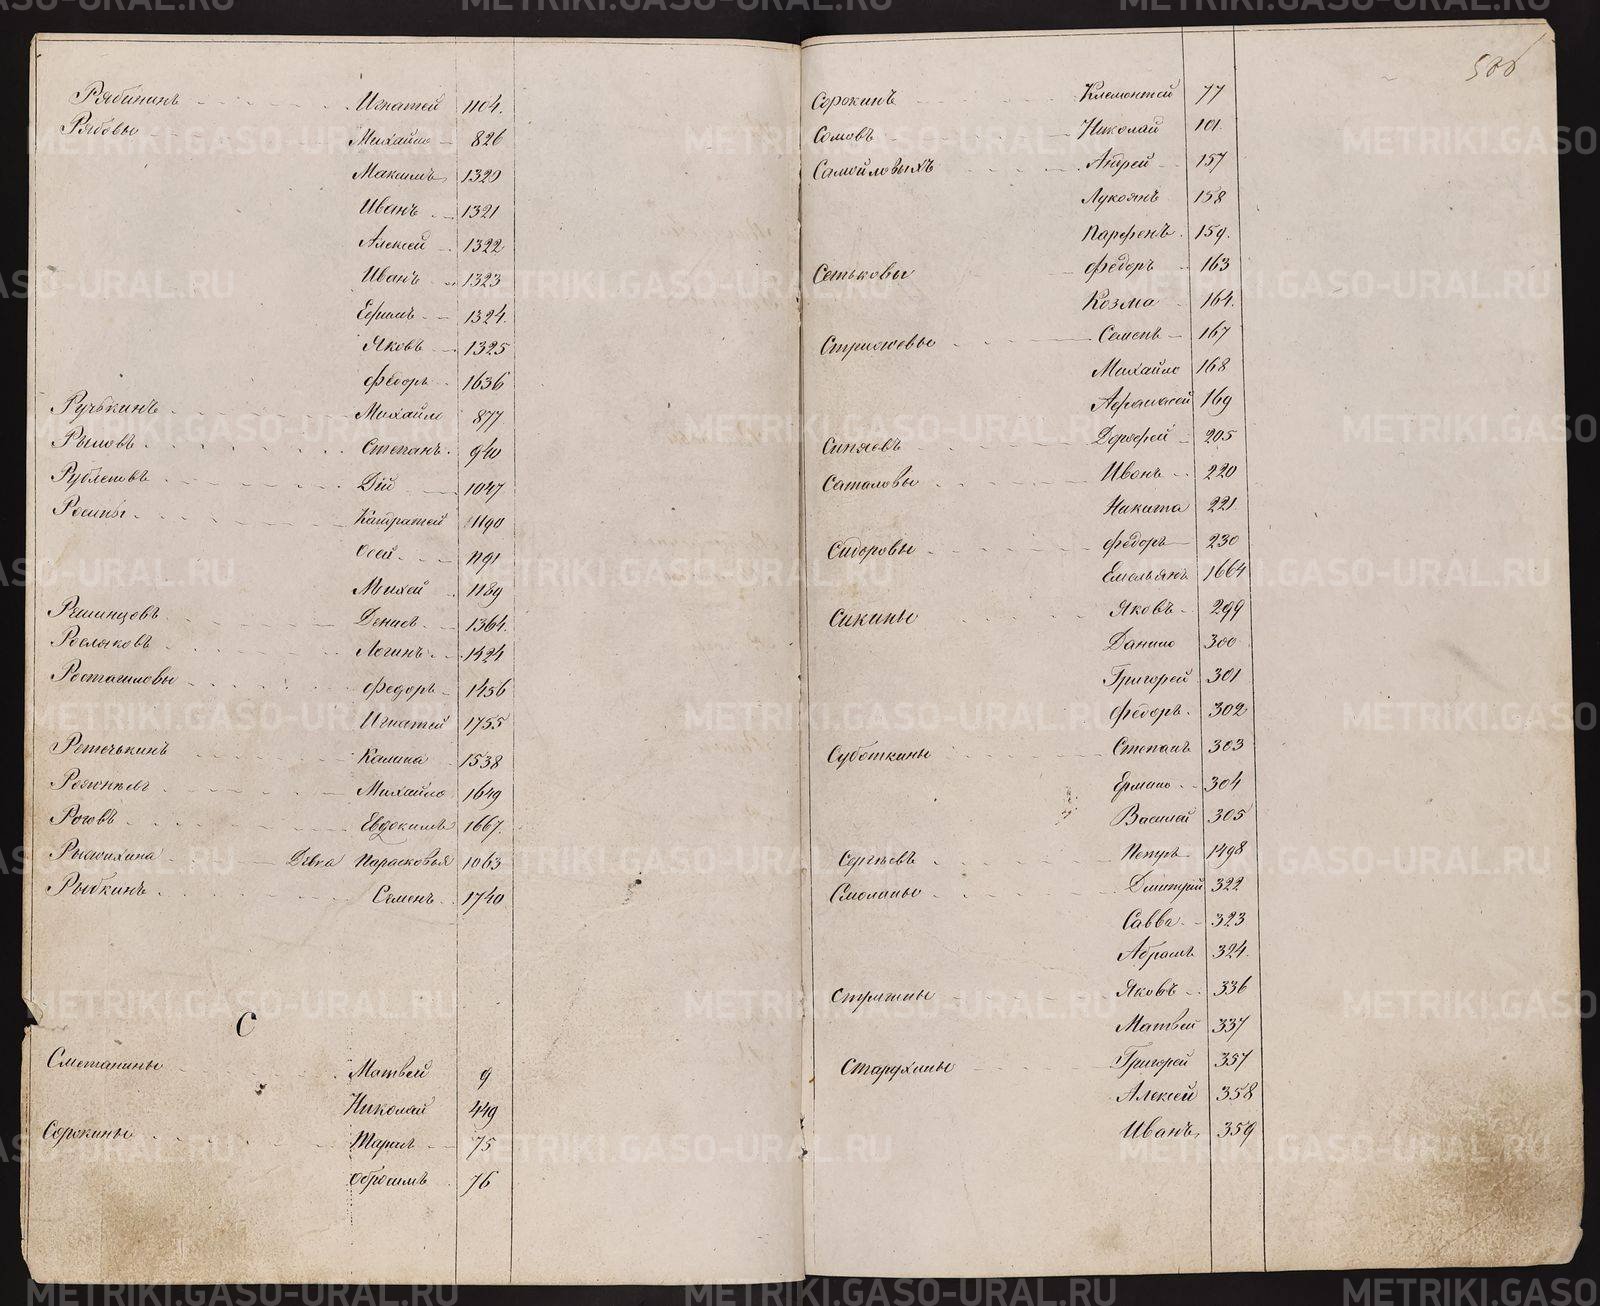 Рябининъ Игнатей 1104.
Рябовы Михайло 826
Максимъ 1320
Иванъ 1321
Алексей 1322
Иванъ 1323
Ефимъ 1324.
Яковъ 1325
Федоръ 1636
Ручькинъ Михайло 877
Рыловъ Степанъ 940
Рублевъ Дій 1047
Росины Кондратей 1190
Осей 1191
Михей 1189
Решинцовъ Денисъ 1364.
Росляковъ Логинъ 1424
Федоръ 1456
Игнатей 1755
Ретючькинъ Калина 1538
Михайло 1649
Роговъ Евдокимъ 1667.
Рысихина Девка Парасковья 1063
Рыбкинъ Семенъ 1740
С
Сметанины Матвей 9
Николай 449
Сорокины Марил 75
Обросимъ 76
506
Сорокинъ Клементей 77
Сомовъ Николай 101.
Самойловыхъ Андрей 157
Лукоянъ 158
Парфенъ 159.
Сетьковы Федоръ 163
Козма 164.
Стрижевы Семенъ 167
Михайло 168
Афонасей 169
Сипяевъ Дорофей 205
Саталовы Иванъ 220
Никита 221.
Сидоровы Федоръ 230
Емельянъ 1664
Сикины Яковъ 299
Данило 300
Григорей 301
Федоръ 302
Суботкины Степанъ 303
Ермило 304
Василей 305
Сергеевъ Петръ 1498
Смолины Дмитрий 322
Савва 323
Абрамъ 324.
Стулины Яковъ 336
Матвей 337
Старухины Григорей 357
Алексей 358
Иванъ 359